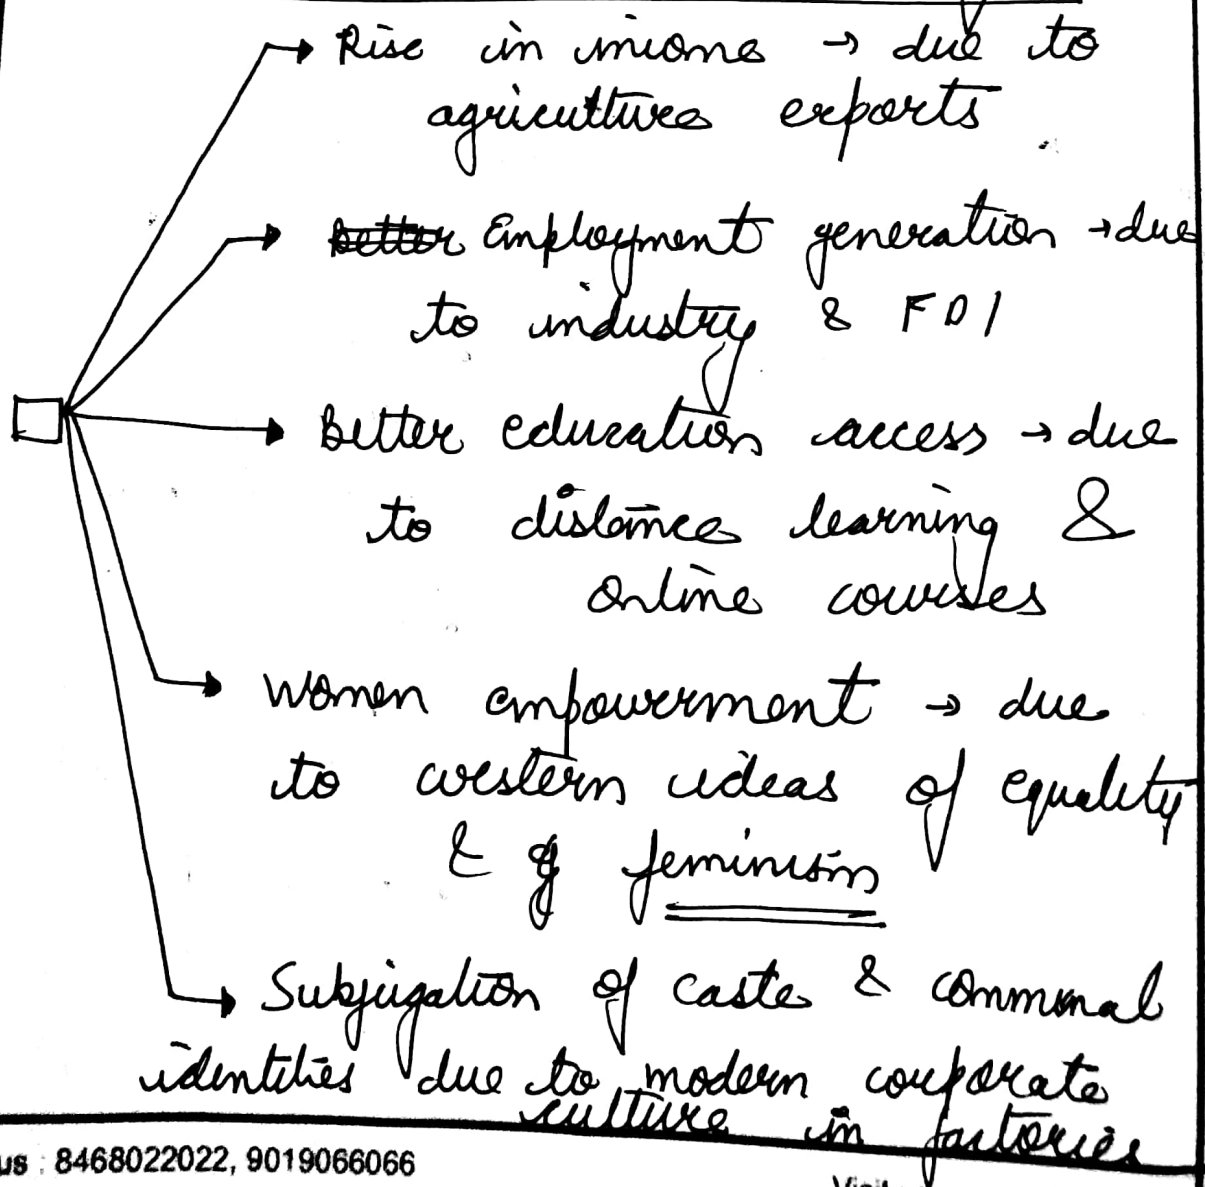 → Rise in income → due to
agriculture exports
→ better Employment generation → due
to industry & FDI
→ Better education access → due
to distance learning &
online courses
→ Women empowerment → due
to western ideas of equality
& of feminism
→ Subjugation of caste & communal
identities due to modern corporate
culture in factories
us : 8468022022, 9019066066